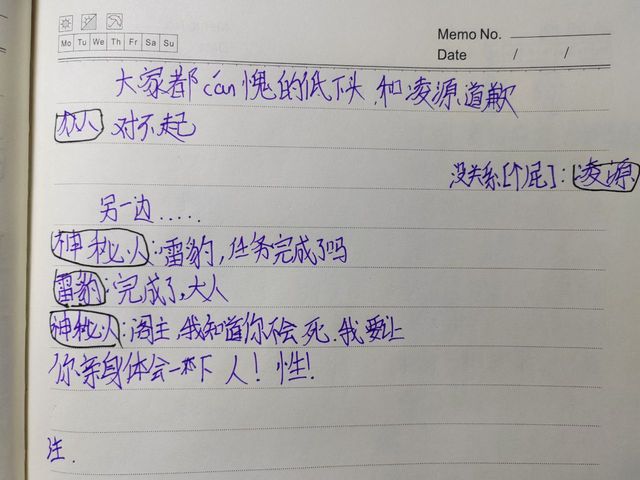 Memo No.
Mo Tu We Th Fr Sa Su
Date / /
大家都cán愧的低下头,和凌源道歉
众人 对不起
没关系[个屁]:凌源
另一边.....
神秘人:雷豹,任务完成了吗
雷豹:完成了,大人
神秘人:阁主,我知道你不会死.我要让
你亲身体会一下 人!性!
注.